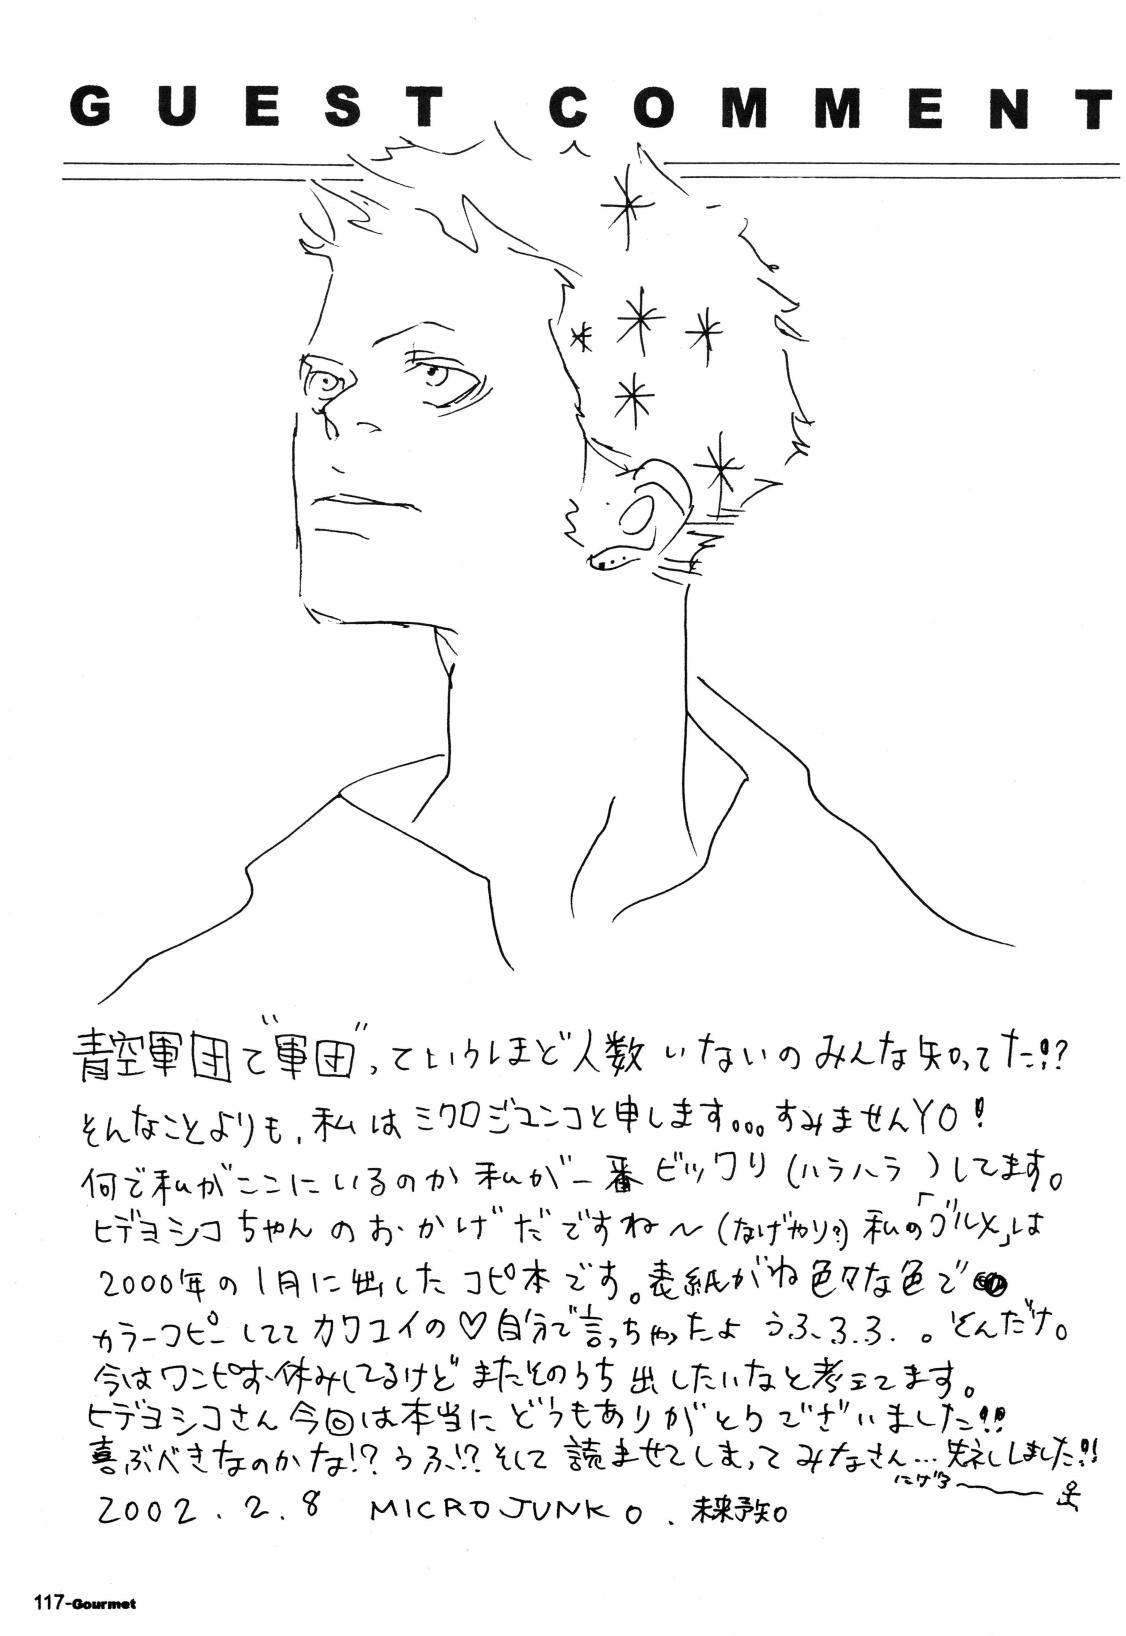 GUEST COMMENT
青空軍団で"軍団"っていうほど人数いないのみんな知ってた!?
そんなことよりも、私はミクロジュンコと申します。。。すみませんYO!
何で私がここにいるのか私が一番ビックリ(ハラハラ)してます。
ヒデヨシコちゃんのおかげだですね〜(なげやり?)私の「グルメ」は
2000年の1月に出したコピ本です。表紙がね色々な色で
カラーコピーしててカワユイの♡自分で言っちゃったよ うふ、ふ、ふ。そんだけ。
今はワンピお休みしてるけどまたそのうち出したいなと考えてます。
ヒデヨシコさん今回は本当にどうもありがとうございました!!
喜ぶべきなのかな!?うふ!?そして読ませてしまってみなさん…失礼しました!!
にげる〜
2002.2.8 MICRO JUNKO.
117-Gourmet